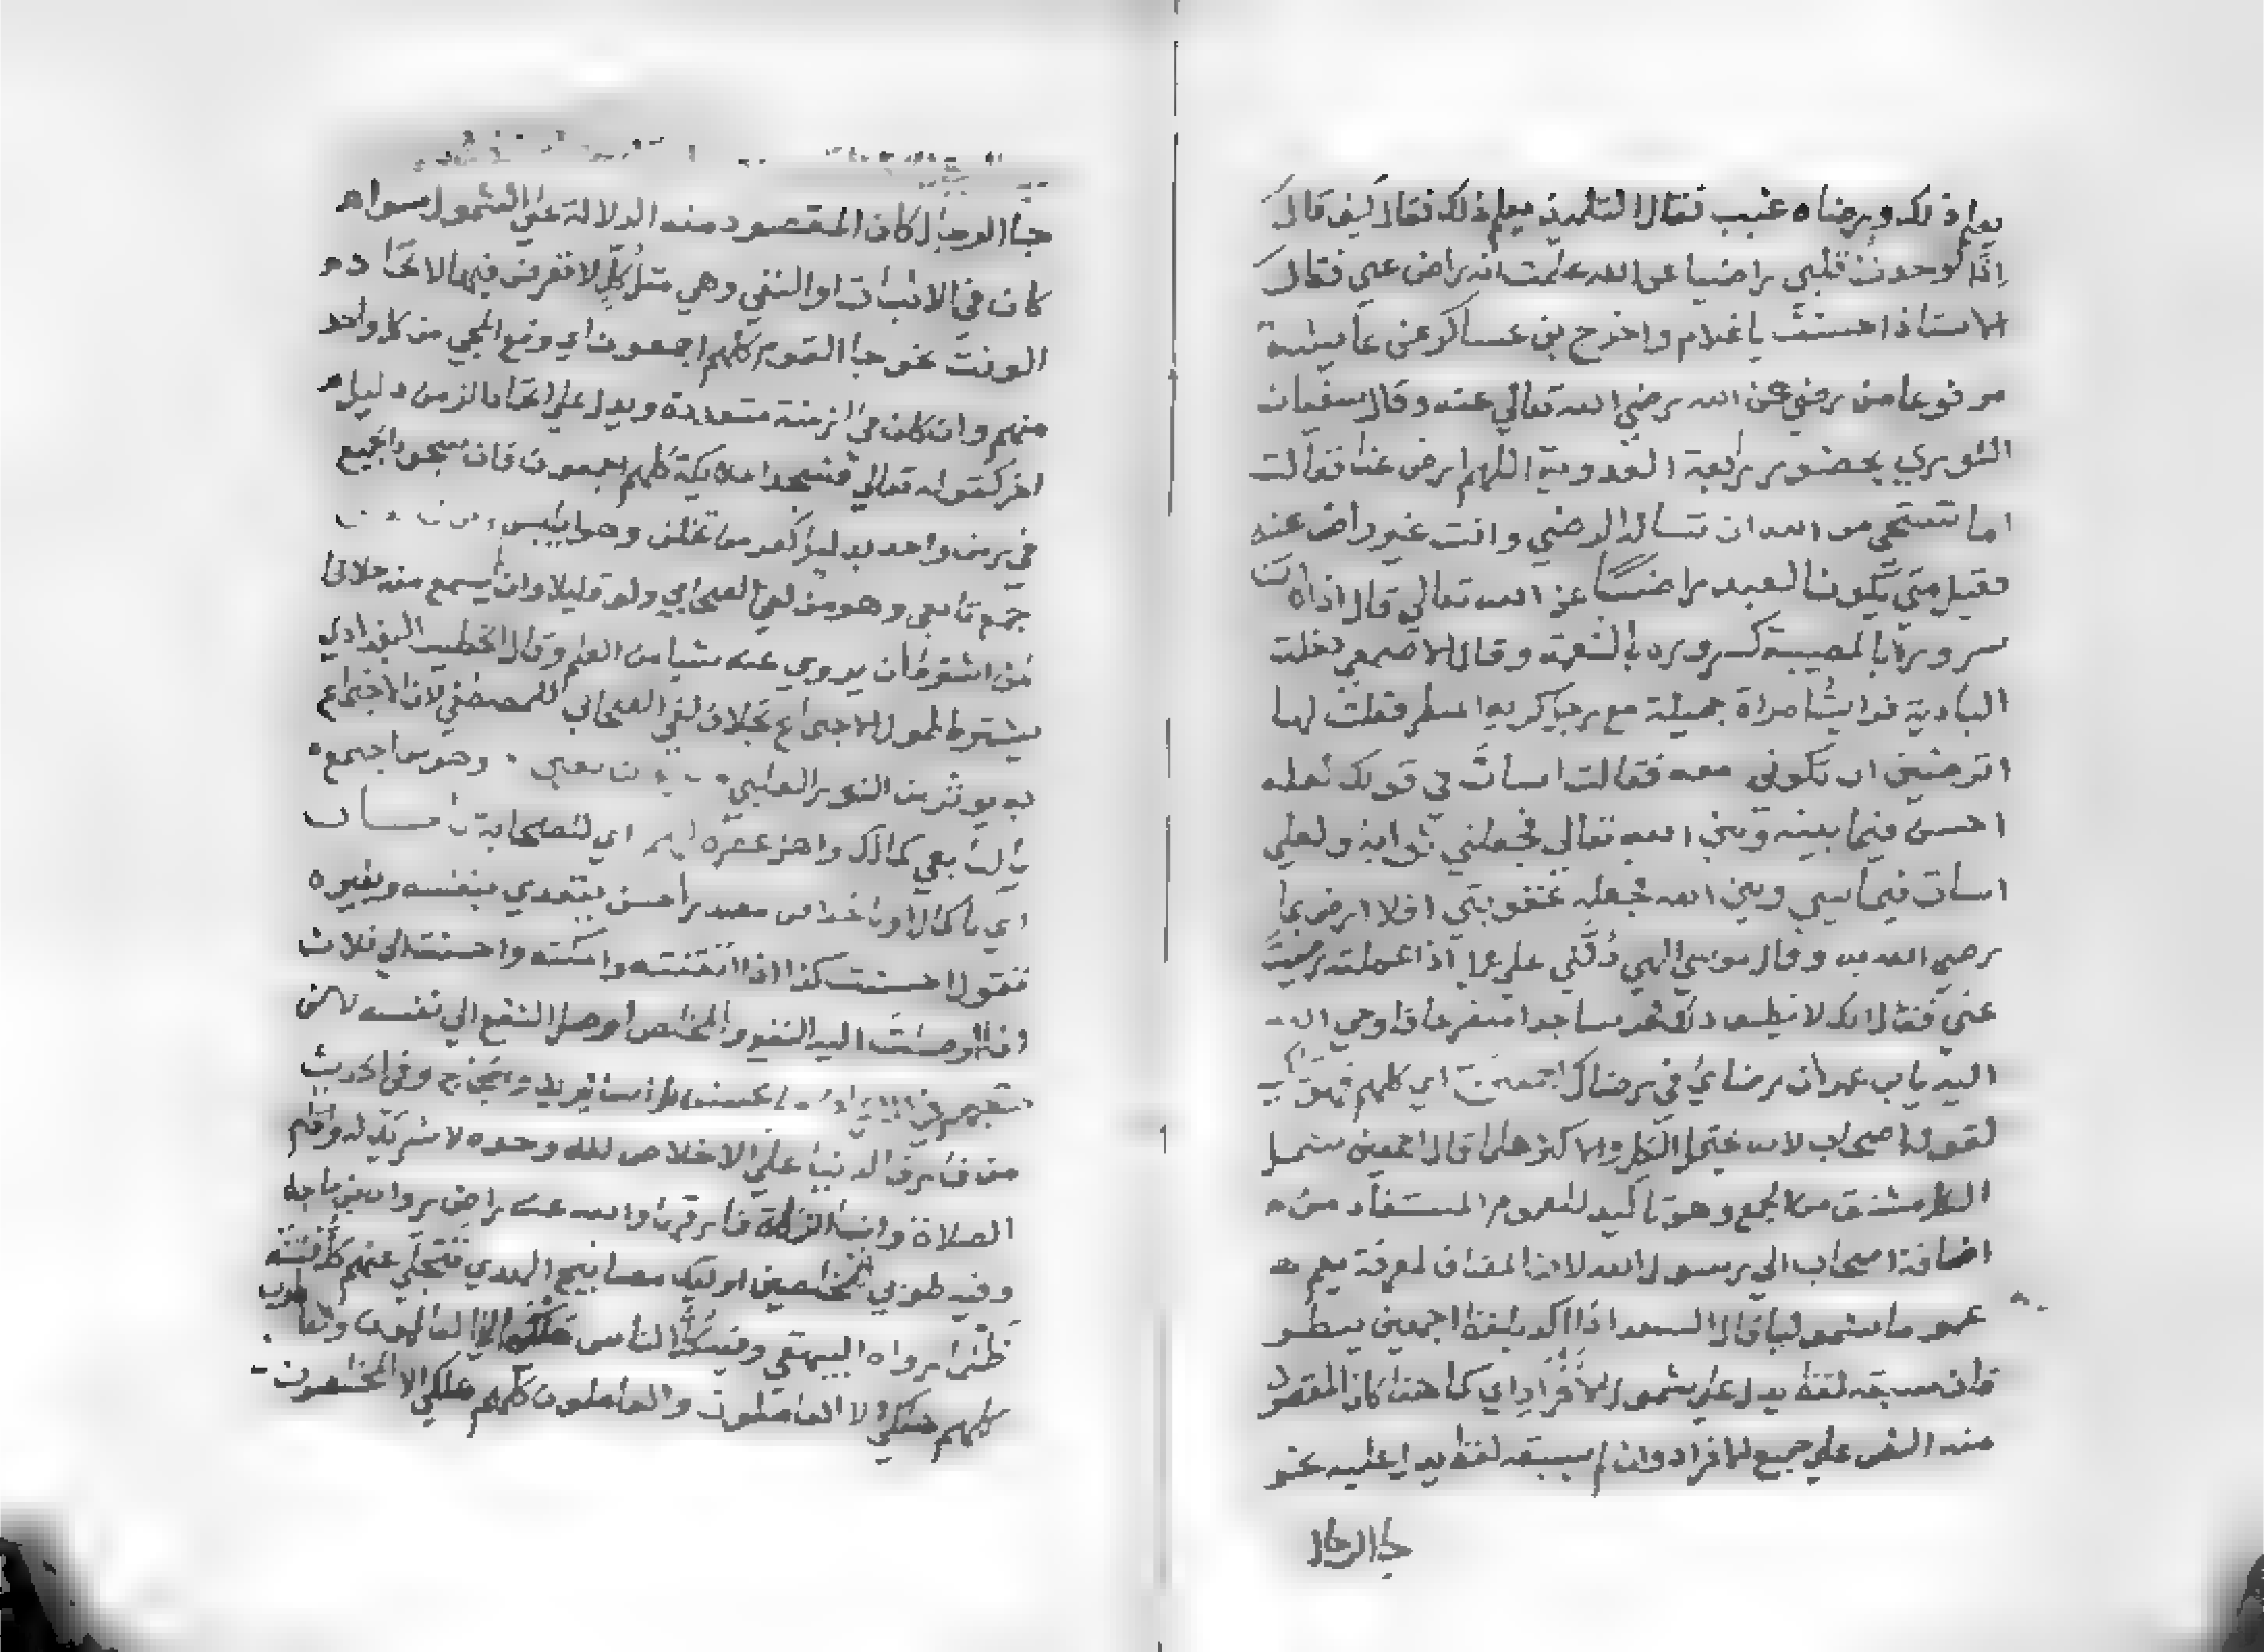 يعلم ذلك ورضاه غيب فقال التلميذ يعلم ذلك فقال كيف قال
اذا وجدت قلبي راضيا عن الله علمت انه راض عني فقال
الاستاذ احسنت يا غلام واخرج بن عساكر عن عايشة
مرفوعا من رضي عن الله رضي الله تعالي عنه وقال سفيان
الثوري بحضور رابعة العدوية اللهم ارض عنا فقالت
اما تستحي من الله ان تسال الرضي وانت غير راض عنه
فقيل متي يكون العبد راضيا عن الله تعالي قال اذا كان
سروره بالمصيبة كسروره بالنعمة وقال الاصمعي دخلت
البادية فرايت امراة جميلة مع رجل كريه المنظر فقلت لها
اترضين ان تكوني معه فقالت اسات في قولك لعله
احسن فيما بينه وبين الله تعالي فجعلني ثوابه ولعلي
اسات فيما بيني وبين الله فجعله عقوبتي افلا ارضي بما
رضي الله به وقال موسي الهي دلني علي عمل اذا عملته رضيت
عني فقال انك لا تطيق ذلك فخر ساجدا متضرعا فاوحي الله
اليه يابن عمران رضاي في رضاك اجمعين اي كلهم فهو
لقوله اصحاب لانه يحتمل الكل والاكثر فلما قال اجمعين شمل
الكل مشتق من الجمع وهو تاكيد للعموم المستفاد من
اضافة اصحاب الي رسول الله لان المضاف لمعرفة يعم
عموما شموليا قال السعد اذا اكد بلفظ اجمعين ينظر
فان سبقه لفظ يدل علي شمول الافراد اي كما هنا كان المقصود
منه النص علي جميع الافراد وان لم يسبقه لفظ يدل عليه نحو
جا الرجال
جا الرجال كان المقصود منه الدلالة علي الشمول سوا
كان في الاثبات او النفي وهي مثل كل لا تعرض فيها لاتحاد
الوقت نحو جا القوم كلهم اجمعون اي وقع المجي من كل واحد
منهم وان كان في ازمنة متعددة ويدل علي اتحاد الزمن دليل
اخر كقوله تعالي فسجد الملايكة كلهم اجمعون فان سجود الجميع
في زمن واحد بدليل كفر من تخلف وهو ابليس
جمع تابعي وهو من لقي الصحابي ولو قليلا وان لم يسمع منه خلافا
لمن اشترط ان يروي عنه شيا من العلم وقال الخطيب البغدادي
يشترط طول الاجتماع بخلاف لقي الصحابي للمصطفي لان الاجتماع
به يوثر من النور القلبي وهو من اجتمع
بالتابعي كمالك واهل عصره لهم اي للصحابة باحسان
اي باكمال او باخلاص مصدر احسن يتعدي بنفسه وبغيره
تقول احسنت كذا اذا اتقنته واكملته واحسنت الي فلان
اذا اوصلت اليه النفع والمخلص اوصل النفع الي نفسه
وفي الحديث
من فارق الدنيا علي الاخلاص لله وحده لا شريك له واقام
الصلاة وايتا الزكاة فارقها والله عنه راض رواه بن ماجه
وفيه طوبي للمخلصين اوليك مصابيح الهدي تنجلي عنهم كل فتنة
ظلما رواه البيهقي وفيه الناس هلكي الا العالمون والعالمون
كلهم هلكي الا العاملون والعاملون كلهم هلكي الا المخلصون